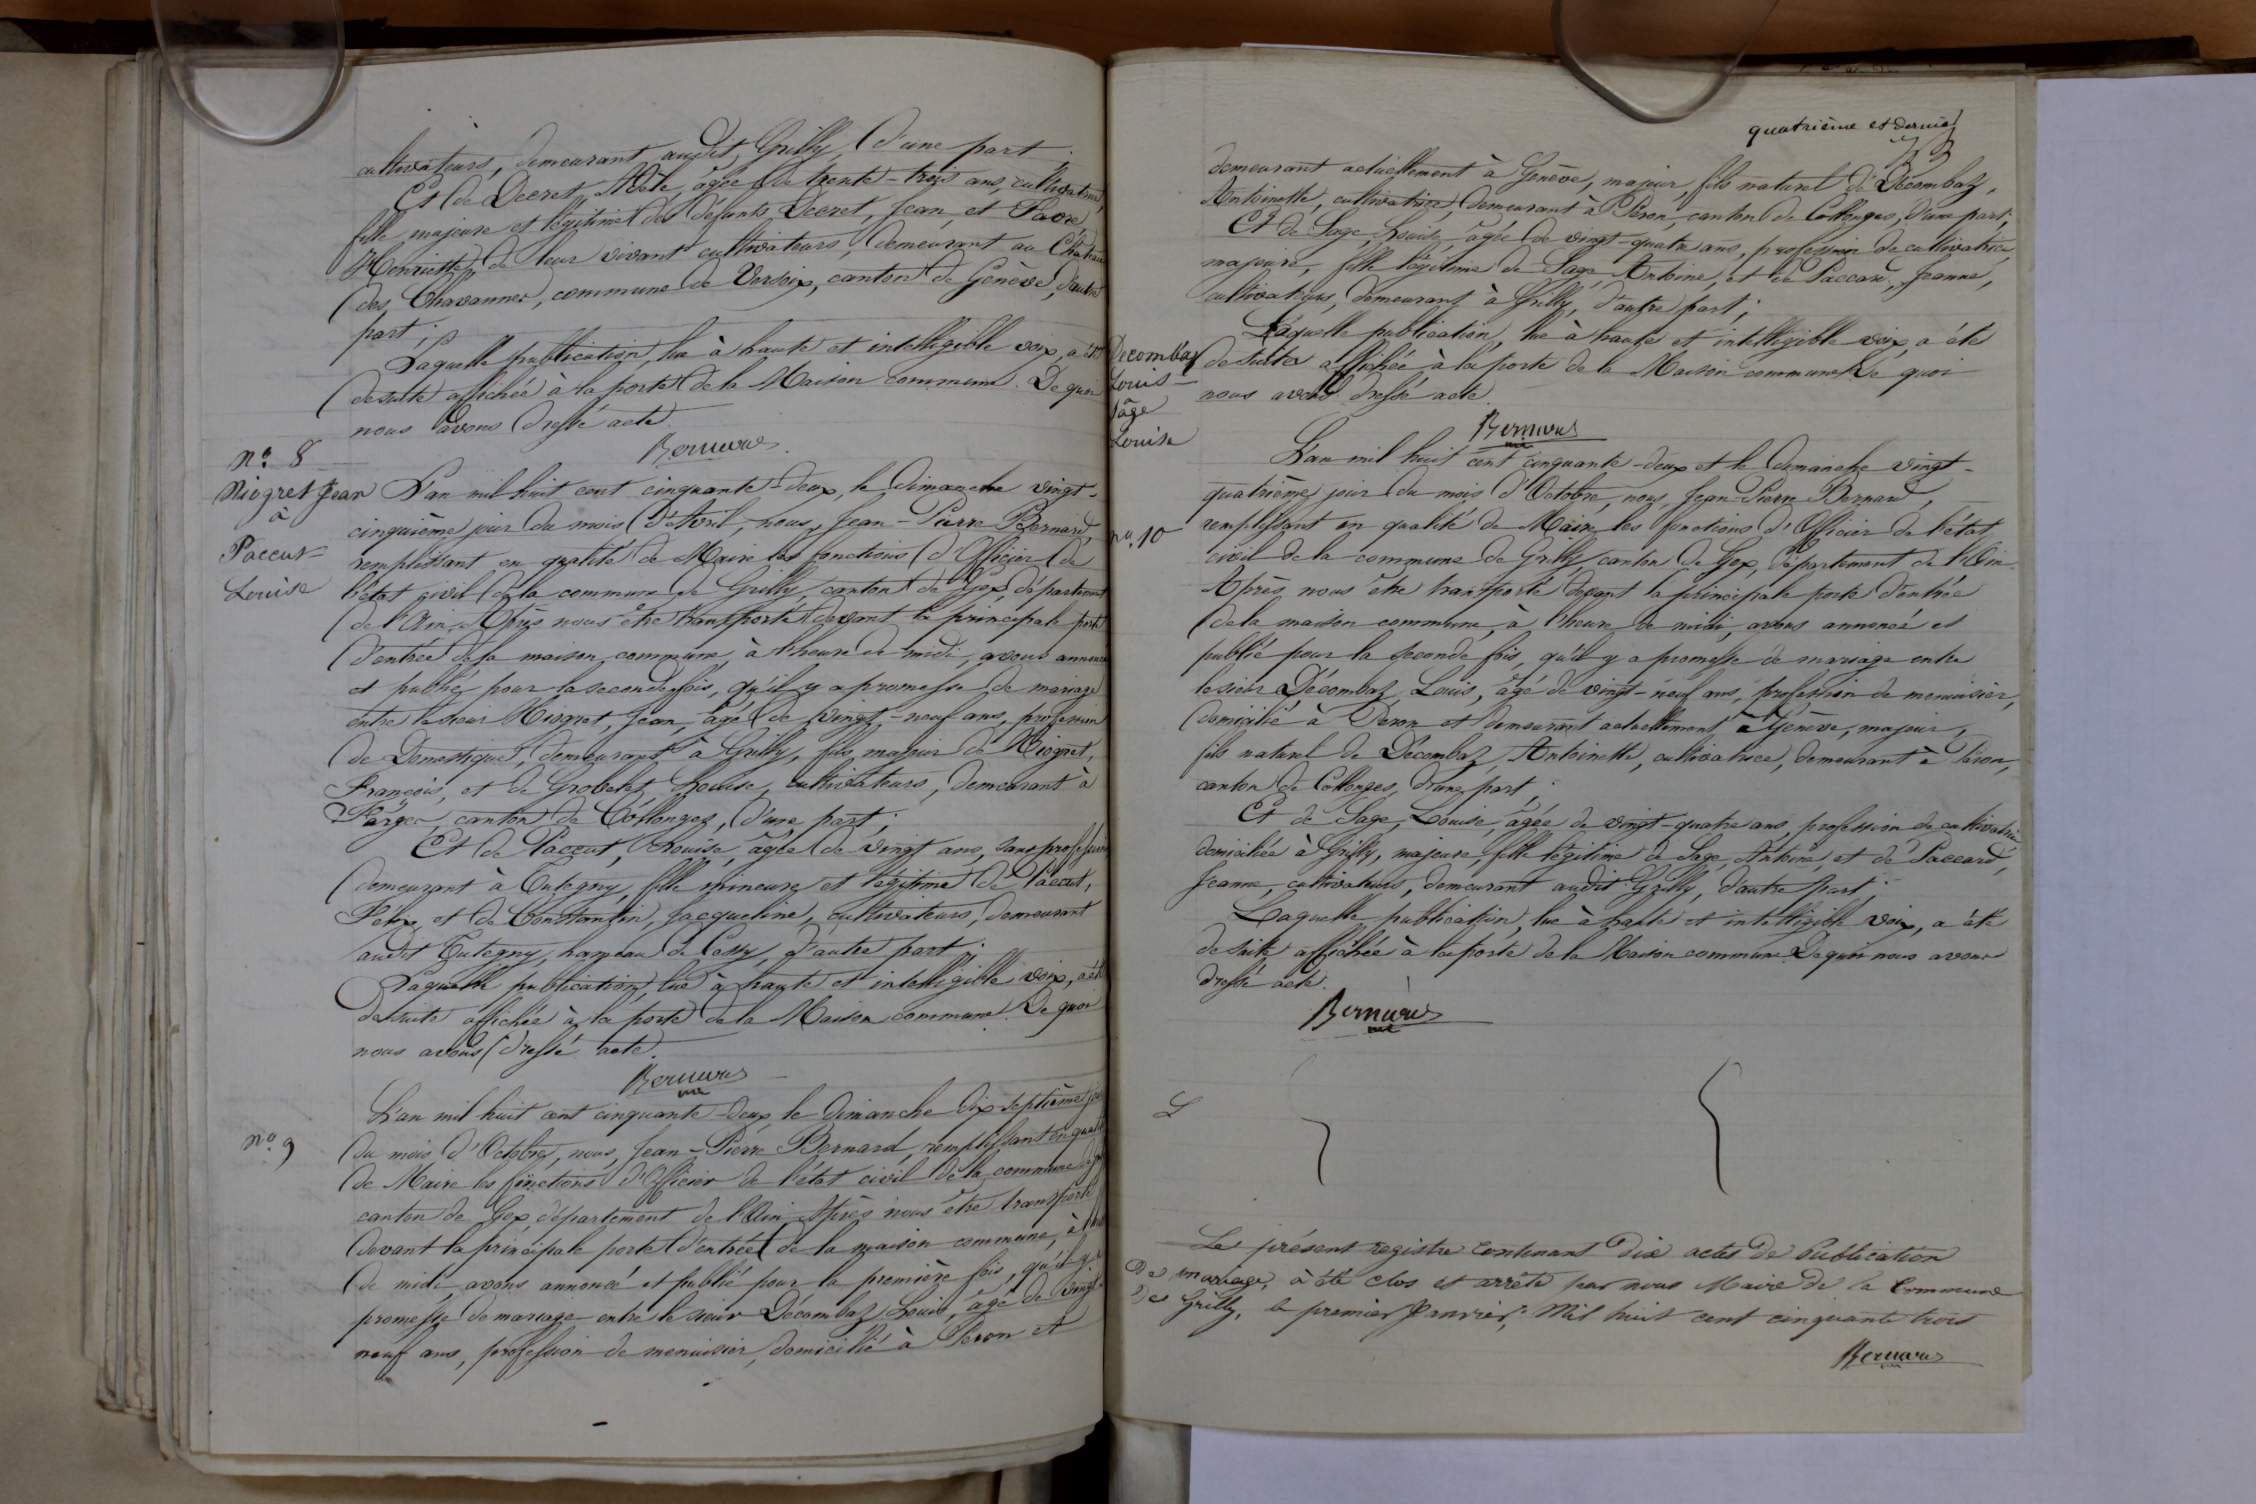 cultivateurs, demeurant audit Grilly, d'une part;
Et de Decret, Adèle, âgée de trente-trois ans, cultivatrice,
fille majeure et légitime des défunts Decret, Jean, et Favre,
Henriette, de leur vivant cultivateurs, demeurant au Château
des Chavannes, commune de Versoix, canton de Genève, d'autre
part;
Laquelle publication, lue à haute et intelligible voix, a été
de suite affichée à la porte de la Maison commune. De quoi
nous avons dressé acte.
Bernard
n.o 8
Niogret Jean
à
Paccut
Louise
L'an mil huit cent cinquante-deux, le dimanche vingt-
cinquième jour du mois d'Avril, nous, Jean-Pierre Bernard,
remplissant en qualité de Maire les fonctions d'Officier de
l'état civil de la commune de Grilly, canton de Gex, département
de l'Ain. Après nous être transporté devant la principale porte
d'entrée de la maison commune, à l'heure de midi, avons annoncé
et publié pour la seconde fois, qu'il y a promesse de mariage
entre le sieur Niogret, Jean, âgé de vingt-neuf ans, profession
de Domestique, demeurant à Grilly, fils majeur de Niogret,
François, et de Grobetty, Louise, cultivateurs, demeurant à
Farges canton de Collonges, d'une part;
Et de Paccut, Louise, âgée de vingt ans, sans profession,
demeurant à Tutegny, fille mineure et légitime de Paccut,
Félix, et de Constantin, Jacqueline, cultivateurs, demeurant
audit Tutegny, hameau de Cessy, d'autre part;
Laquelle publication, lue à haute et intelligible voix, a été
de suite affichée à la porte de la Maison commune. De quoi
nous avons dressé acte.
Bernard
n.o 9
L'an mil huit cent cinquante-deux, le dimanche dix-septième jour
du mois d'Octobre, nous, Jean-Pierre Bernard, remplissant en qualité
de Maire les fonctions d'Officier de l'état civil de la commune de
canton de Gex, département de l'Ain. Après nous être transporté
devant la principale porte d'entrée de la maison commune, à
de midi, avons annoncé et publié pour la première fois, qu'il y a
promesse de mariage entre le sieur Décombaz, Louis, âgé de vingt-
neuf ans, profession de menuisier, domicilié à Peron et
quatrième et dernier
demeurant actuellement à Genève, majeur, fils naturel de Décombaz,
Antoinette, cultivatrice, demeurant à Péron, canton de Collonges, d'une part;
Et de Sage, Louise, âgée de vingt-quatre ans, profession de cultivatrice,
majeure, fille légitime de Sage, Antoine, et de Paccard, Jeanne,
cultivateurs, demeurant à Grilly, d'autre part;
Laquelle publication, lue à haute et intelligible voix, a été
de suite affichée à la porte de la Maison commune. De quoi
nous avons dressé acte.
Bernard
Decombaz
Louis
à
Sage
Louise
n.o 10
L'an mil huit cent cinquante-deux et le demanche vingt-
quatrième jour du mois d'Octobre, nous, Jean-Pierre Bernard,
remplissant en qualité de Maire les fonctions d'Officier de l'état
civil de la commune de Grilly, canton de Gex, département de l'Ain.
Après nous être transporté devant la principale porte d'entrée
de la maison commune, à l'heure de midi, avons annoncé et
publié pour la seconde fois, qu'il y a promesse de mariage entre
le sieur Décombaz, Louis, âgé de vingt-neuf ans, profession de menuisier,
domicilié à Péron et demeurant actuellement à Genève, majeur,
fils naturel de Décombaz, Antoinette, cultivatrice, demeurant à Péron,
canton de Collonges, d'une part;
Et de Sage, Louise, âgée de vingt-quatre ans, profession de cultivatrice
domiciliée à Grilly, majeure, fille légitime de Sage, Antoine, et de Paccard,
Jeanne, cultivateurs, demeurant audit Grilly, d'autre part;
Laquelle publication, lue à haute et intelligible voix, a été
de suite affichée à la porte de la Maison commune. De quoi nous avons
dressé acte.
Bernard
Le présent registre contenant dix actes de Publication
de mariage, à été clos et arrêté par nous Maire de la Commune
de Grilly, le premier Janvier, Mil huit cent cinquante trois
Bernard